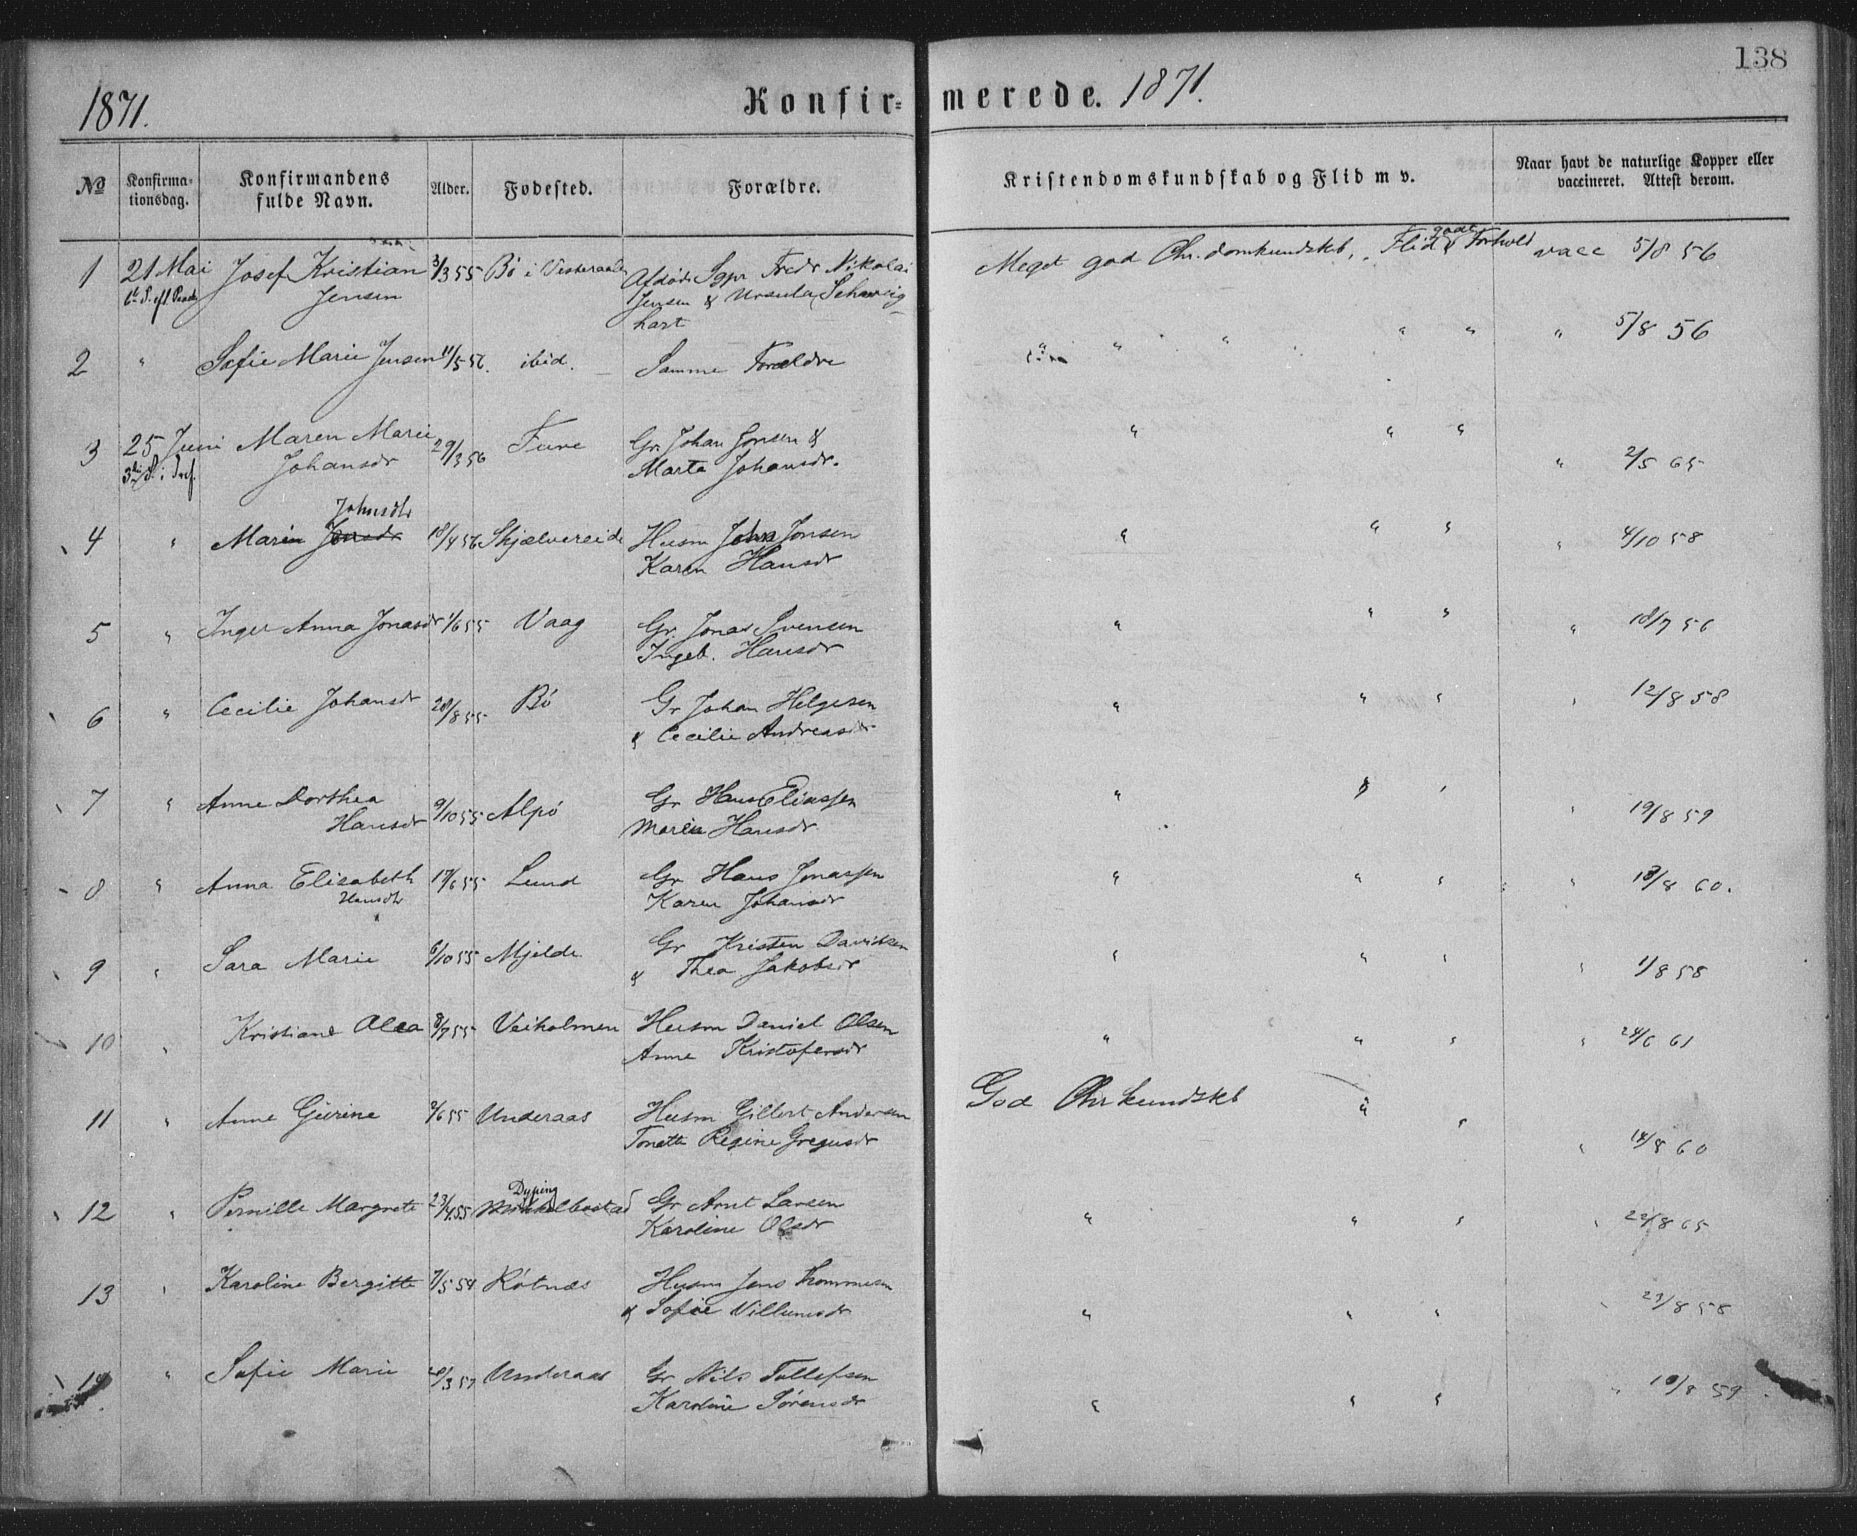 138
1871.
Konfir= merede. 1871.
№
Konfirma-
tionsdag.
Konfirmandens
fulde Navn.
Alder.
Fødested.
Forældre.
Kristendomskundskab og Flid m v.
Naar havt de naturlige Kopper eller
vaccineret. Attest derom.
1 21 Mai Josef Kristian 3/3 55 Bö i Vesteraalen Afdöde Sgpr Fredr Nikolai Meget god Chr.domkundskb, Flid & gode Forhold vacc 5/8 56
Jensen Jensen & Ursula Schweig-
hart
2 " Sofie Marie Jensen 11/5 56. ibid. Samme Forældre " " " " " " " 5/8 56
3 25 Juni Maren Marie 29/3 56 Fure Gr. Johan Jonsen & " " " " 2/5 65
Johansdr Marta Johansdr.
Johnsdtr
4 " Maria Jonsdr 18/4 56 Skjelvereide Husm John Jonsen " " " " 4/10 58
Karen Hansdr
5 " Inger Anna Jonasdr 1/6 55 Vaag Gr. Jonas Svensen " " " " 18/7 56
Ingeb. Hansdr
6 " Cecilie Johansdr 28/8 55 Bö Gr Johan Helgesen " " " " 12/8 58
& Cecilie Andreasdr
7 " Anne Dorthea 9/10 55 Alpö Gr Hans Eliassen " " " " 19/8 59
Hansdr Maria Hansdr
8 " Anna Elisabeth 17/6 55 Lund Gr Hans Jonassen " " " " 18/8 60.
Hansdtr Karen Johansdr
9 " Sara Marie 6/10 55 Mjelde Gr Kristen Davidsen " " " " 1/8 58
& Thea Jakobsdr
10 " Kristiane Olea 8/7 55 Veiholmen Husm Daniel Olsen " " " " 24/6 61
Anne Kristofersdr
11 " Anne Gurine 2/6 55 Underaas Husm Gilbert Andersen God Chr kundskb " " " 14/8 60
Tonette Regine Gregusdr
Dyping
12 " Pernille Margrete 23/4 55 Mikkelbostad Gr Arnt Larsen " " " " 22/8 65
Karoline Olsdr
13 " Karoline Bergitte 7/5 54 Rötnæs Husm Jens Thommesen " " " " 23/8 58
& Sofie Villumsdr
14 " Sofie Marie 20/3 57 Underaas Gr Nils Tollefsen " " " " 18/8 59
Karoline Sörensdr